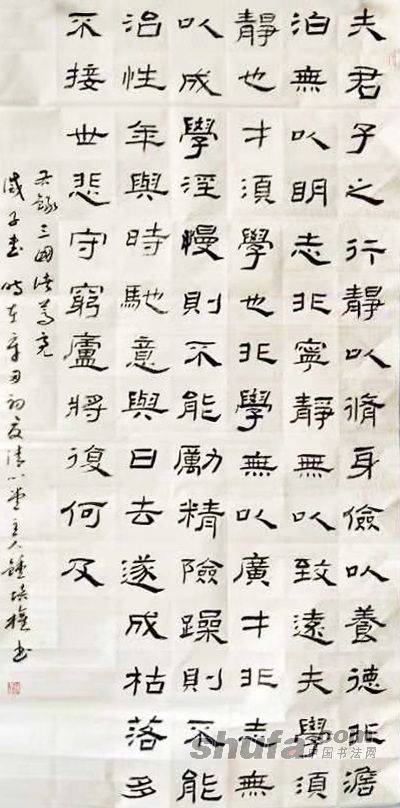 夫君子之行靜以脩身儉以養德非澹
泊無以明志非寧靜無以致遠夫學須
靜也才須學也非學無以廣才非志無
以成學淫慢則不能勵精險躁則不能
治性年與時馳意與日去遂成枯落多
不接世悲守窮廬將復何及
錄三國諸葛亮
誡子書時在辛丑初夏清心堂主人鍾培權書
中国书法网